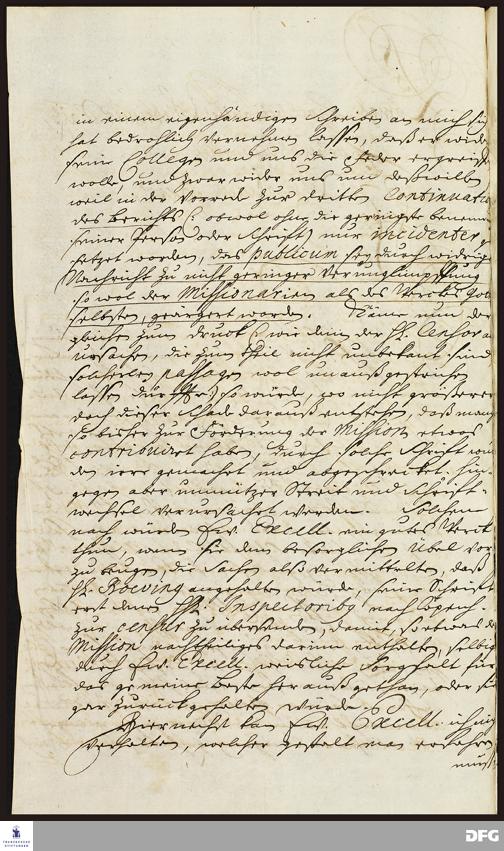 in einem eigenhändigen Schreiben an mich sich
hat bedrohlich vernehmen lassen, daß er wider
seine Collegen und uns die Feder ergreiffen
wolle, und zwar wider uns um deßwillen
weil in der Vorrede zur dritten Continuation
des Berichts (: obwol ohne die geringste benennung
seiner Person oder Schrift) nur incidenter
setzet worden, das publicum sey durch widrige
Nachricht zu nicht geringer Verunglimpffung
so wol der Missionarien als des Wercks Gottes
selbsten, geärgert worden. Käme nun der
gleichen zum druck (: wie denn der H. Censor
ursachen, die zum theil nicht unbekant sind
solcherley passagen wol unausgestrichen
lassen dürffte:) so würde, wo nicht größerer
doch dieser Schade daraus entstehen, daß manche
so bisher zur Förderung der Mission etwas
contribuiret haben, durch solche Schrift
den irre gemachet und abgeschrecket. hin-
gegen aber unnützer Streit und Schrift-
wechsel verursachet werden. Solchem
nach würden Ew. Excell. ein gutes Werck
thun, wenn sie dem besorglichen übel vor
zu beugen, die Sache also vermittelten, daß
H. Bövingh angehalten würde, seine Schrift
erst denen HH. Inspectoribus nach Copenh.
zur censur zu übersenden, damit, so etwas der
Mission nachtheiliges darinn enthalten, selbiges
durch Ew. Excell. weisliche Sorgfalt für
das gemeine Beste herausgethan, oder sie
gar zurückgehalten würde.
Hiernechst kan Ew. Excell. ich nicht
verhalten, welcher gestalt man erfahren
muß
FRANCKESCHE
STIFTUNGEN
DFG